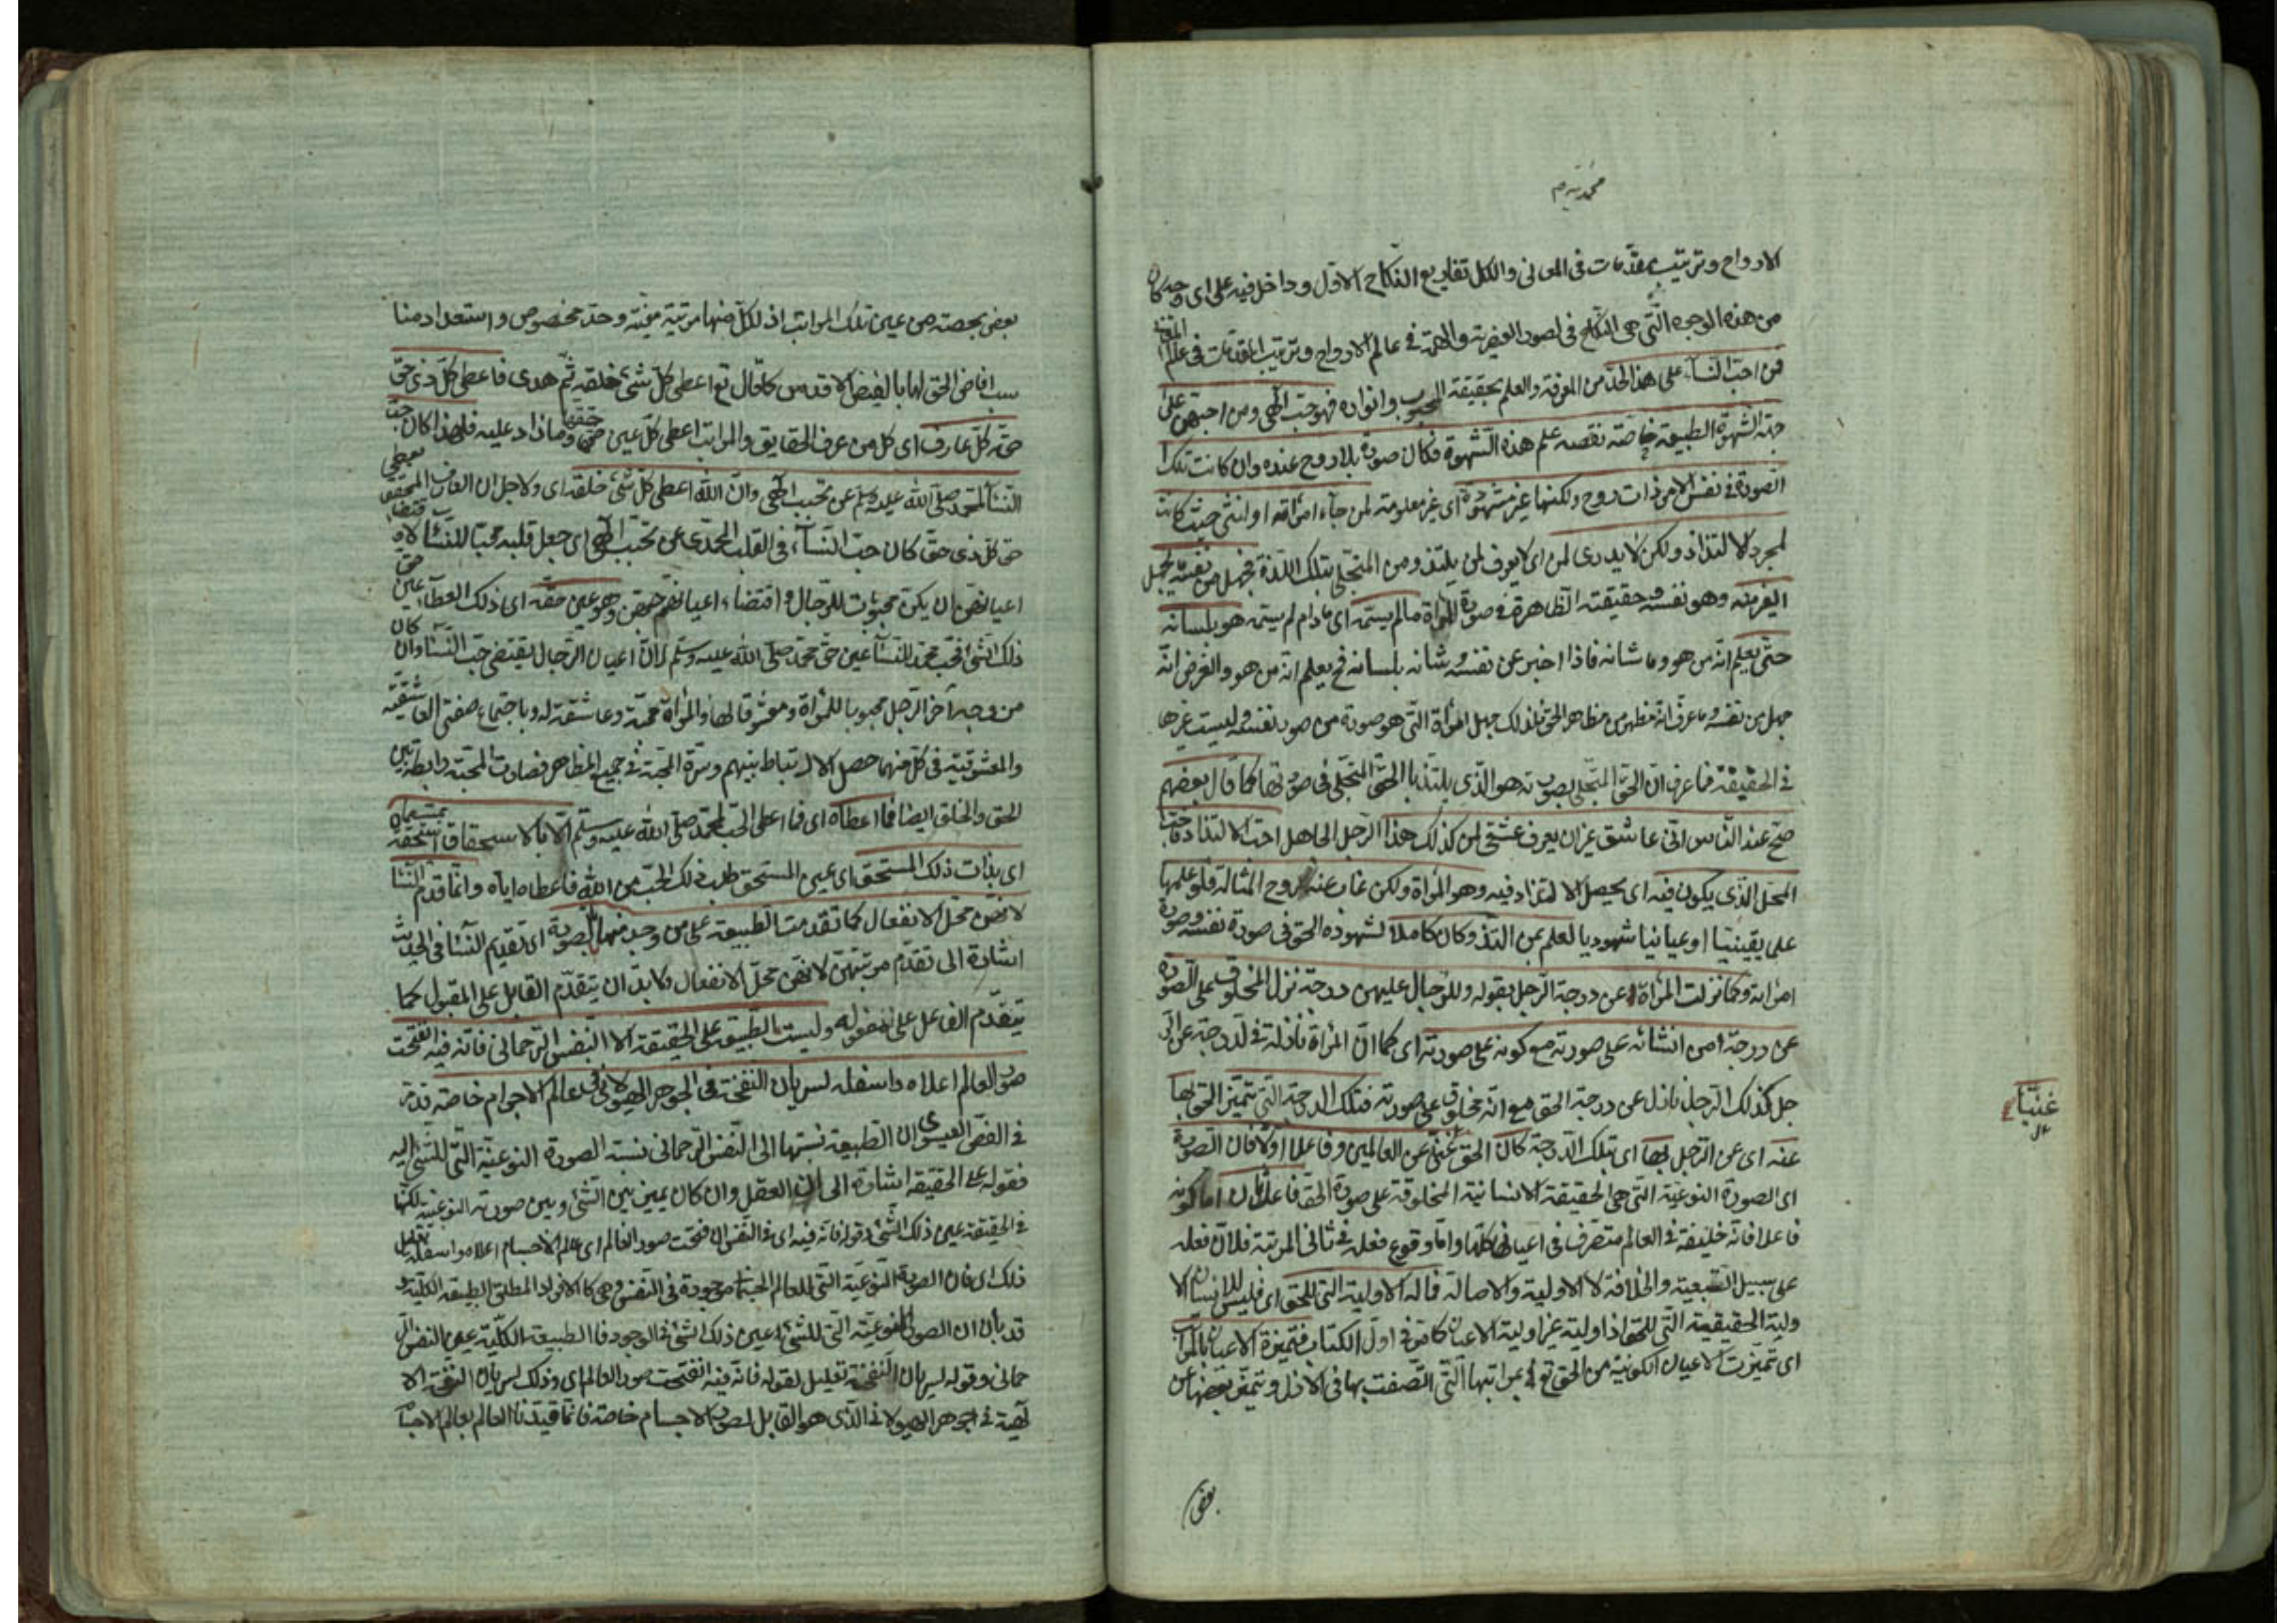 محمديه م
الارواح وترتيب مقدمات فى المعانى والكل تفاريع النكاح الاول وداخل فيه على اى وجه كان
من هذه الوجوه التى هى النكاح فى لصور العنصرية والهمة فى عالم الارواح وترتيب المقدمات فى عالم المعنى
فمن احب النسآء على هذا الحد من المعرفة والعلم بحقيقة المحبوب وانواره فهو حب الهى ومن احبهن على
جهة الشهوة الطبيعية خاصة نقصه علم هذه الشهوة فكان صورة بلا روح عنده وان كانت تلك
الصورة فى نفس الامر ذات روح ولكنها غير مشهودة اى غير معلومة لمن جآء امرأته او انثى حيث كانت
لمجرد الالتذاذ ولكن لا يدرى لمن اى لا يعرف لمن يلتذ ومن المتجلى بتلك اللذة فجهل من نفسه ما يجهل
الغير منه وهو نفسه وحقيقته الظاهرة فى صورة المرأة مالم يسمه اى مادام لم يسمه هو بلسانه
حتى يعلم انه من هو وما شانه فاذا اخبر عن نفسه وشانه بلسانه فح يعلم انه من هو والغرض انه
جهل من نفسه وما عرف انه مظهر من مظاهر الحق فلذلك جهل امرأة التى هو صورة من صور نفسه وليست غيرها
فى الحقيقة فما عرف ان الحق المتجلى بصورته هو الذى يلتذ بالحق المتجلى فى صورتها كما قال بعضهم
صح عند الناس انى عاشق غير ان يعرف عشقى لمن كذلك هذا الرجل الجاهل احب الالتذاذ فاحب
المحل الذى يكون فيه اى يحصل الالتذاذ فيه وهو المرأة ولكن غاب عنه روح المسألة فلو علمها
علما يقينيا او عيانيا شهوديا لعلم بمن التذ وكان كاملا لشهوده الحق فى صورة نفسه وصورة
امرأته وكما نزلت المرأة عن درجة الرجل بقوله وللرجال عليهن درجة نزل المخلوق على الصورة
عن درجة من انشائه على صورته مع كونه على صورته اى كما ان المرأة نازلة فى الدرجة عن الر
جل كذلك الرجل نازل عن درجة الحق مع انه مخلوق على صورته فتلك الدرجة التى تميز الحق بها
عنه اى عن الرجل بها اى بتلك الدرجة كان الحق غنى عن العالمين وفاعلا اولا فان الصورة
غنيا
اى الصورة النوعية التى هى الحقيقة الانسانية المخلوقة على صورة الحق فاعل ثان اما كونه
فاعلا فانه خليفة فى العالم متصرف فى اعيانها كلها واما وقوع فعله فى ثانى المرتبة فلان فعله
على سبيل التبعية والخلافة لا الاولية والاصالة فماله الاولية التى للحق اى فليس للانسان الا
ولية الحقيقية التى للحق اذ اوليته غير اولية الاعيان كما مر فى اول الكتاب فتميزة الاعيان بالمراتب
اى تميزت الاعيان الكونية من الحق تع بمراتبها التى اتصفت بها فى الازل وتميز بعضها عن
بعض
بعض بحصته من عين تلك المراتب اذ لكل منها مرتبة معينة وحد مخصوص واستعداد منا
سب افاض الحق لها بالفيض الاقدس كما قال تع اعطى كل شئ خلقه ثم هدى فاعطى كل ذى حق
حقه كل عارف اى كل من عرف الحقايق والمراتب اعطى كل عين حقها وما زاد عليه فلهذا كان حب
النسآ لمحمد صلى الله عليه وسلم عن تحبب الهى وان الله اعطى كل شئ خلقه اى ولاجل ان العارف المحقق يعطى
حق كل ذى حق كان حب النسآء فى القلب المحمدى عن تحبب الهى اى جعل قلبه محبا للنسآ لاقتضا
اعيانهن ان يكن محبوبات للرجال واقتضاء اعيانهم حبهن وهو عين حقه اى ذلك العطآء عين حق
ذلك الشئ فحب محمد للنسآ عين حق محمد صلى الله عليه وسلم لان اعيان الرجال يقتضى حب النسآ وان كان
من وجه آخر الرجل محبوبا للمرأة ومعشوقا لها والمرأة محبة وعاشقة له وباجتماع صفتى العاشقية
والمعشوقية فى كل منهما حصل الارتباط بينهم وسرة المحبة فى جميع المظاهر فصارت المحبة رابطة بين
الحق والخلق ايضا فما اعطاه اى فما اعطى الحب لمحمد صلى الله عليه وسلم الا بالاستحقاق استحقه بمسماه
اى بذات ذلك المستحق اى عين المستحق طلب ذلك الحب من الله فاعطاه اياه وانما قدم النسا
لانهن محل الانفعال كما تقدمت الطبيعة على من وجد منها بالصورة اى تقديم النسآ فى الحديث
اشارة الى تقدم مرتبتهن لانهن محل الانفعال ولابد ان يتقدم القابل على المقبول كما
يتقدم الفاعل على مفعوله وليست الطبيعة على الحقيقة الا النفس الرحمانى فانه فيه انفتحت
صور العالم اعلاه واسفله لسريان النفخة فى الجوهر الهيولانى فى عالم الاجرام خاصة قد مر
فى الفص العيسوى ان الطبيعة نسبتها الى النفس الرحمانى نسبة الصورة النوعية التى للشئ اليه
فقوله على الحقيقة اشارة الى ان العقل وان كان يميز بين الشئ وبين صورته النوعية لكنها
فى الحقيقة عين ذلك الشئ وقوله فانه فيه اى فى النفس انفتحت صور العالم اى عالم الاجسام اعلاه واسفله تعليل
ذلك اى فان الصورة النوعية التى للعالم الجسمانى موجودة فى النفس وهى كالافراد المطلق الطبيعة الكلية و
قد بان ان الصورة النوعية التى للشئ عين ذلك الشئ فى الوجود فالطبيعة الكلية عين النفس الر
حمانى وقوله لسريان النفخة تعليل لقوله فانه فيه انفتحت صور العالم اى وذلك لسريان النفخة الا
لهية فى الجوهر الهيولانى الذى هو القابل لصور الاجسام خاصة فانما قيدنا العالم بعالم الاجسا